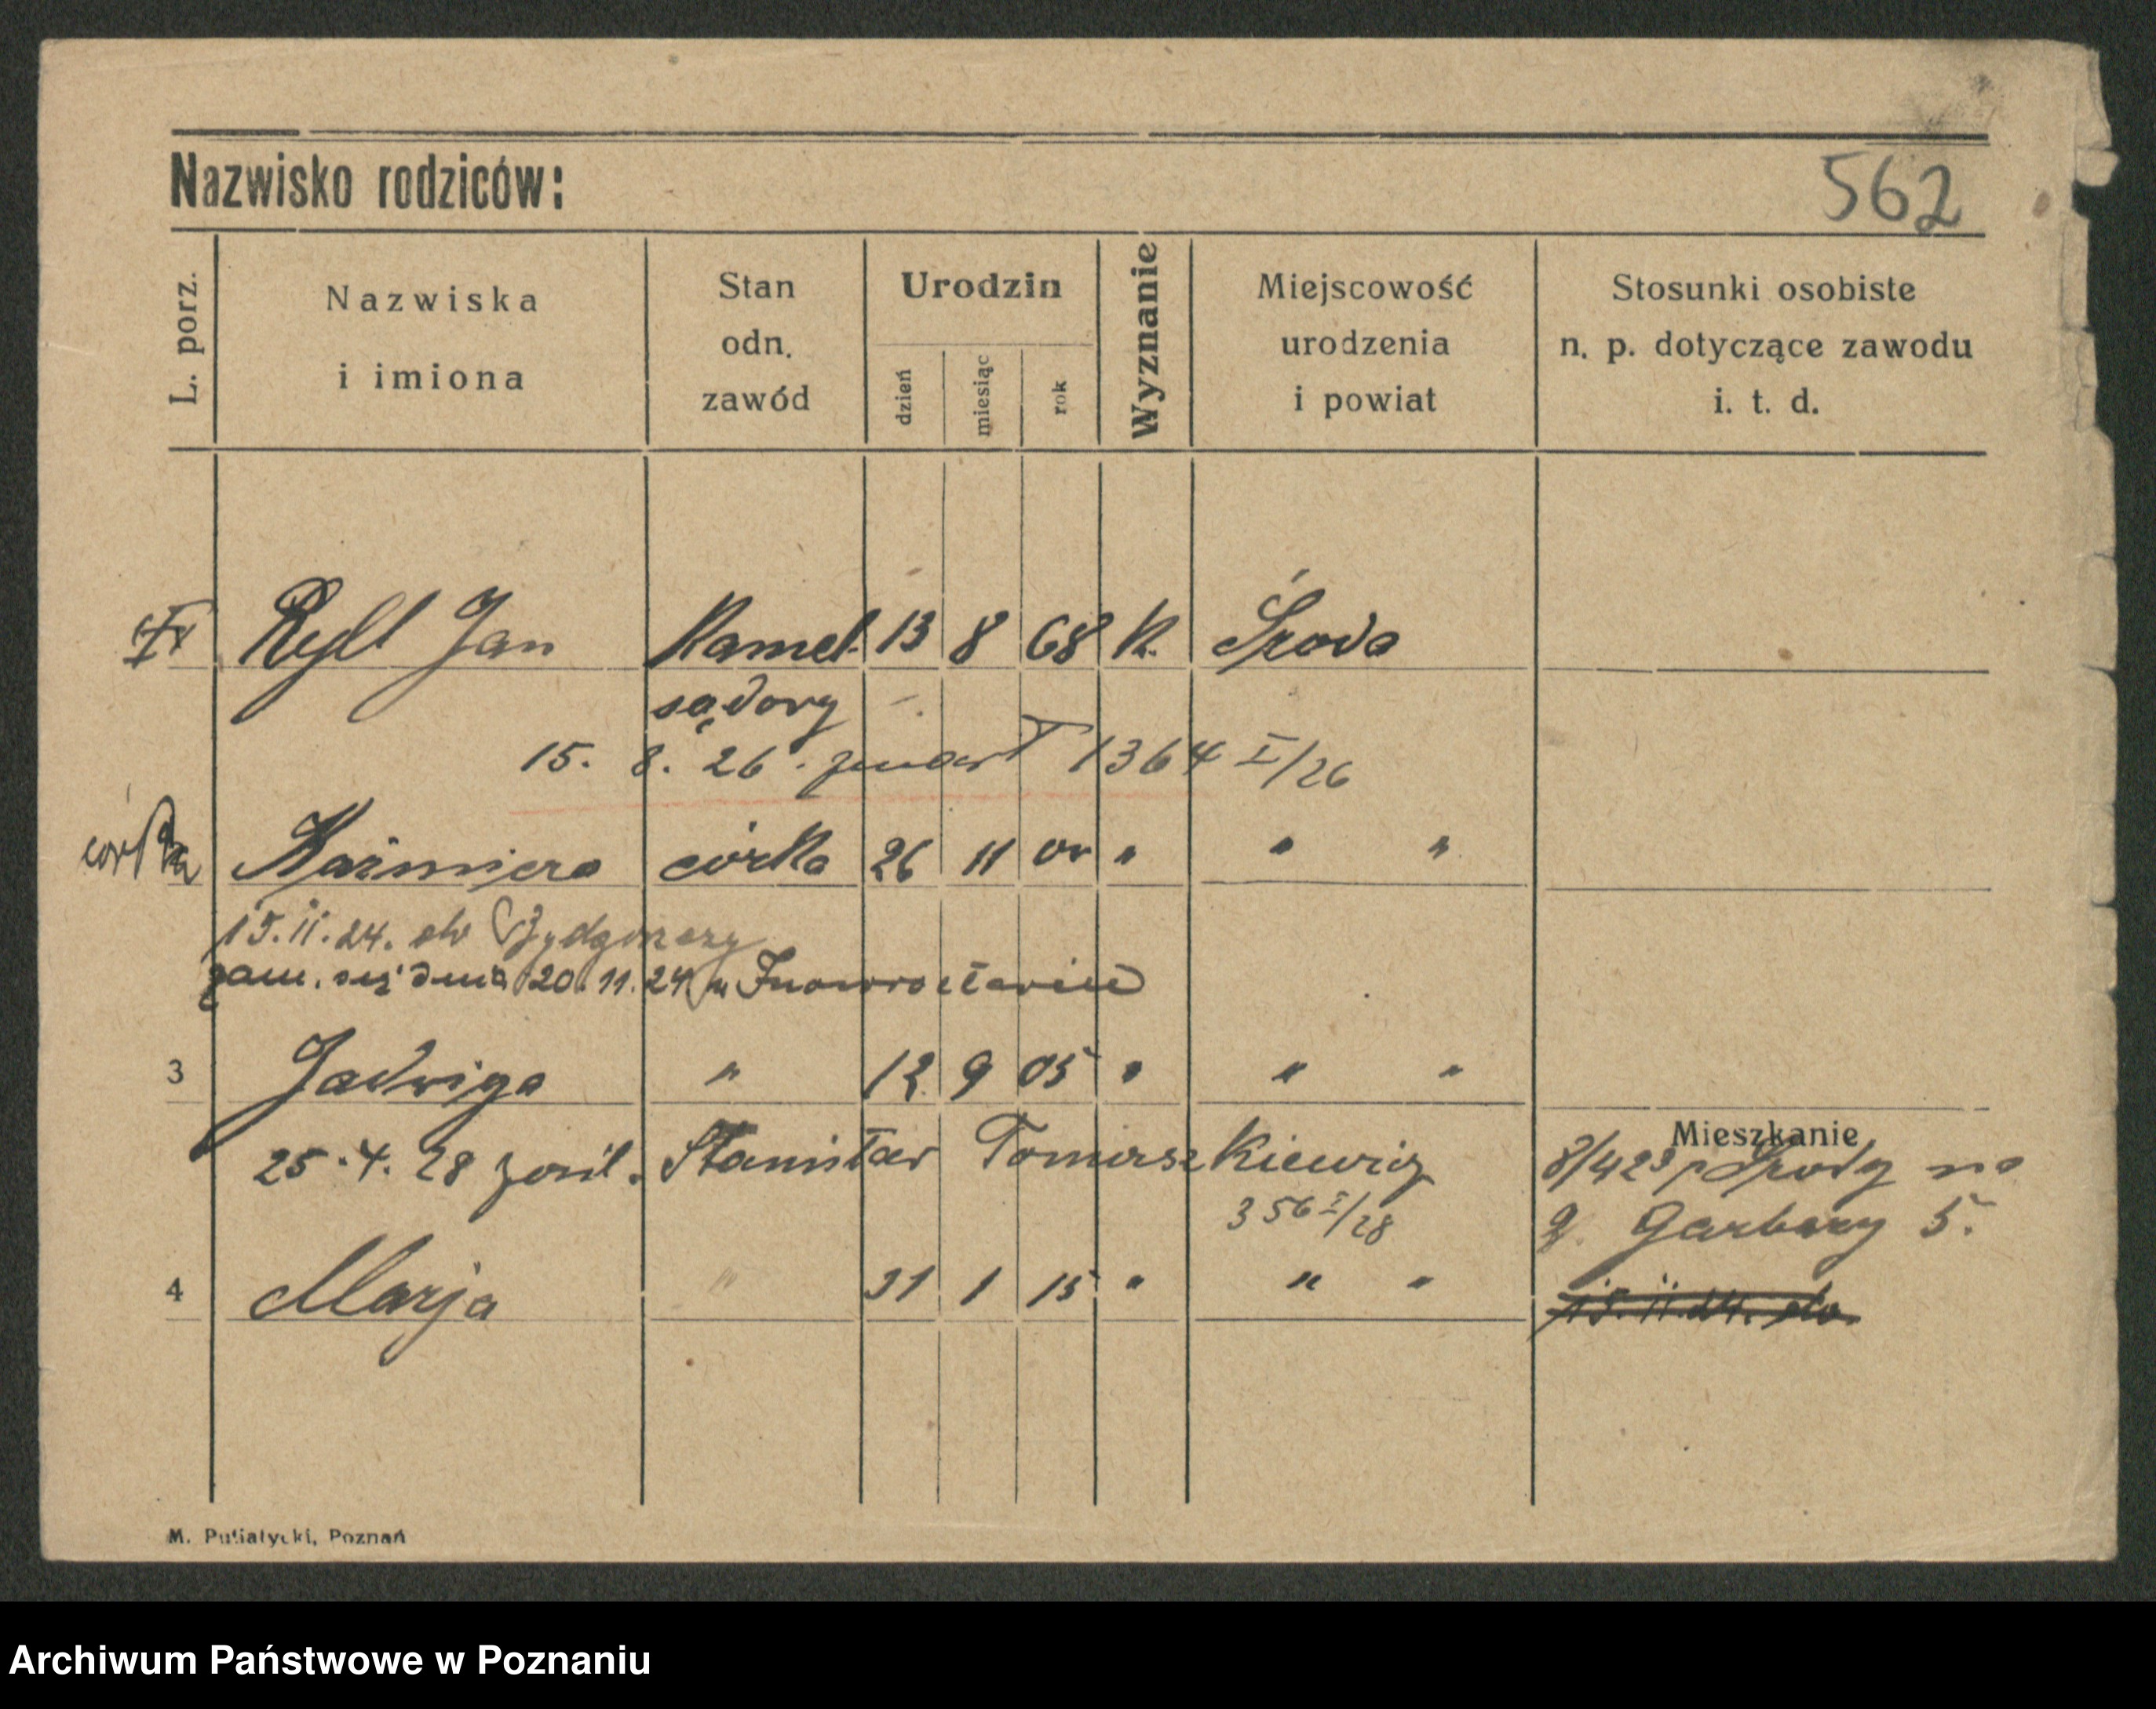 Nazwisko rodziców:
562
L. porz.
Nazwiska
i imiona
Stan
odn.
zawód
Urodzin
dzień
miesiąc
rok
Wyznanie
Miejscowość
urodzenia
i powiat
Stosunki osobiste
n. p. dotyczące zawodu
i. t. d.
Rydl Jan Kancel. 13 8 68 K. Środa
sądowy
15. 8. 26. zmarł 1364 I/26
córka Kaźmiera córka 26 11 " " "
15.11.24. do Bydgoszczy
zam. się dnia 20.11.24 w Inowrocławiu
3 Jadwiga " 12. 9 05 " " "
Mieszkanie
25.4.28 zaśl. Stanisław Tomaszkiewicz
8/423 Środy na
356 I/28
Garbary 5.
4 Marja " 31 1 15 " " "
15.11.24. do
M. Putiatycki, Poznań
Archiwum Państwowe w Poznaniu